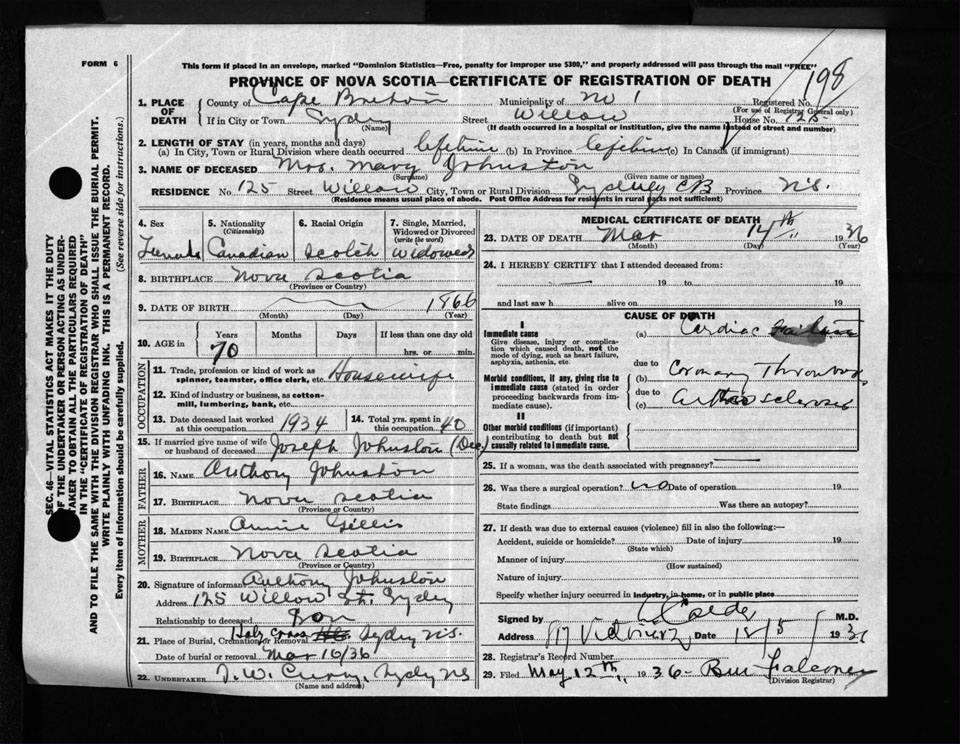 FORM 6
This form if placed in an envelope, marked "Dominion Statistics—Free, penalty for improper use $300," and properly addressed will pass through the mail "FREE"
PROVINCE OF NOVA SCOTIA—CERTIFICATE OF REGISTRATION OF DEATH
198
1. PLACE OF DEATH
County of Cape Breton Municipality of No 1 Registered No.
(For use of Registrar General only)
If in City or Town Sydney Street Willow House No. 125
(Name) (If death occurred in a hospital or institution, give the name instead of street and number)
2. LENGTH OF STAY (in years, months and days)
(a) In City, Town or Rural Division where death occurred lifetime (b) In Province lifetime (c) In Canada (if immigrant)
3. NAME OF DECEASED Mrs. Mary Johnston
(Surname) (Given name or names)
RESIDENCE No. 125 Street Willow City, Town or Rural Division Sydney CB Province N.S.
(Residence means usual place of abode. Post Office Address for residents in rural parts not sufficient)
4. Sex 5. Nationality (Citizenship) 6. Racial Origin 7. Single, Married, Widowed or Divorced (write the word)
Female Canadian Scotch Widowed
8. BIRTHPLACE Nova Scotia
(Province or Country)
9. DATE OF BIRTH 1866
(Month) (Day) (Year)
10. AGE in Years Months Days If less than one day old
70 hrs. or min.
OCCUPATION
11. Trade, profession or kind of work as spinner, teamster, office clerk, etc. Housewife
12. Kind of industry or business, as cotton-mill, lumbering, bank, etc.
13. Date deceased last worked at this occupation 1934 14. Total yrs. spent in this occupation 40
15. If married give name of wife or husband of deceased Joseph Johnston (Dec)
FATHER
16. NAME Anthony Johnston
17. BIRTHPLACE Nova Scotia
(Province or Country)
MOTHER
18. MAIDEN NAME Annie Gillis
19. BIRTHPLACE Nova Scotia
(Province or Country)
20. Signature of informant Anthony Johnston
Address 125 Willow St. Sydney
Relationship to deceased Son
21. Place of Burial, Cremation or Removal Holy Cross Sydney N.S.
Date of burial or removal Mar 16/36
22. UNDERTAKER J. W. Curry, Sydney NS
(Name and address)
MEDICAL CERTIFICATE OF DEATH
23. DATE OF DEATH Mar 14th 1936
(Month) (Day) (Year)
24. I HEREBY CERTIFY that I attended deceased from:
19 to 19
and last saw h alive on 19
CAUSE OF DEATH
I
Immediate cause
Give disease, injury or complication which caused death, not the mode of dying, such as heart failure, asphyxia, asthenia, etc.
(a) Cardiac Failure
due to
Morbid conditions, if any, giving rise to immediate cause (stated in order proceeding backwards from immediate cause).
(b) Coronary Thrombosis
due to
(c) Arteriosclerosis
II
Other morbid conditions (if important) contributing to death but not causally related to immediate cause.
25. If a woman, was the death associated with pregnancy?
26. Was there a surgical operation? no Date of operation 19
State findings Was there an autopsy?
27. If death was due to external causes (violence) fill in also the following:—
Accident, suicide or homicide? Date of injury 19
(State which)
Manner of injury
(How sustained)
Nature of injury
Specify whether injury occurred in industry, in home, or in public place
Signed by M.D.
Address Date 18/5/ 1936
28. Registrar's Record Number
29. Filed May 12th 1936 Falconer
(Division Registrar)
SEC. 46—VITAL STATISTICS ACT MAKES IT THE DUTY
OF THE UNDERTAKER OR PERSON ACTING AS UNDERTAKER TO OBTAIN ALL THE PARTICULARS REQUIRED
IN THE "CERTIFICATE OF REGISTRATION OF DEATH"
AND TO FILE THE SAME WITH THE DIVISION REGISTRAR WHO SHALL ISSUE THE BURIAL PERMIT.
WRITE PLAINLY WITH UNFADING INK. THIS IS A PERMANENT RECORD.
Every item of information should be carefully supplied. (See reverse side for instructions.)